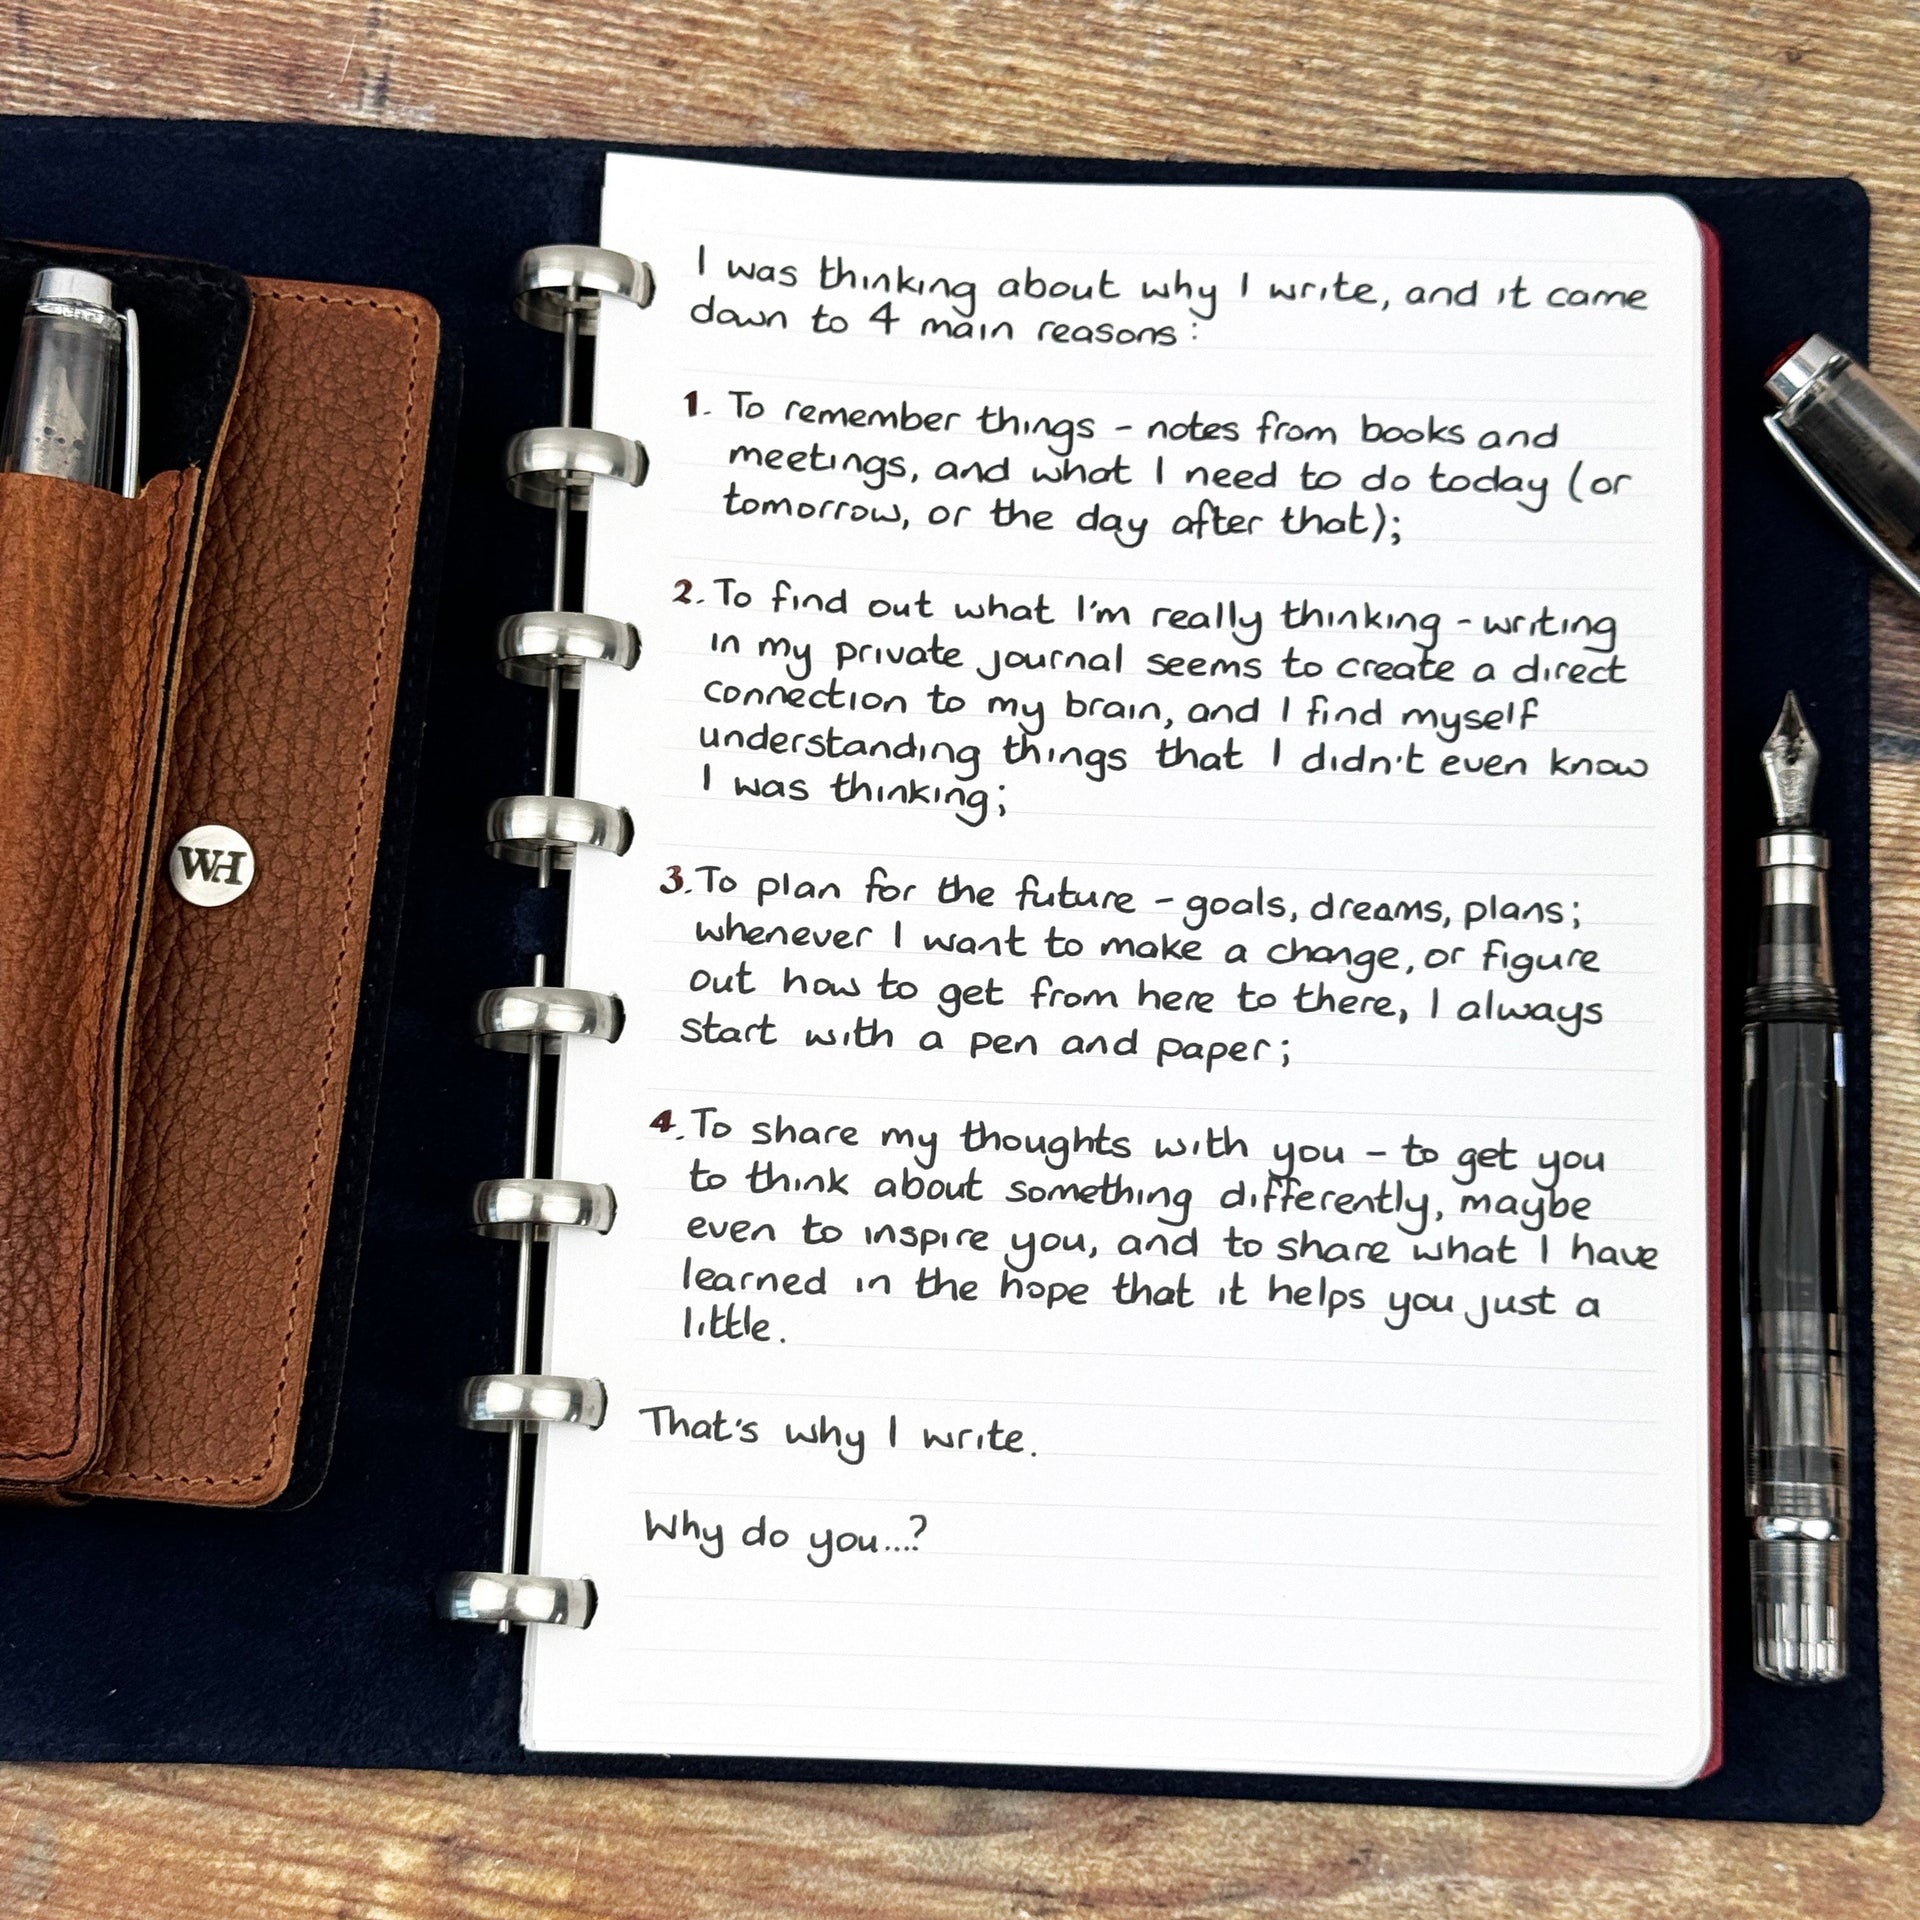 WH
I was thinking about why I write, and it came
down to 4 main reasons:
1. To remember things - notes from books and
meetings, and what I need to do today (or
tomorrow, or the day after that);
2. To find out what I'm really thinking - writing
in my private journal seems to create a direct
connection to my brain, and I find myself
understanding things that I didn't even know
I was thinking;
3. To plan for the future - goals, dreams, plans;
whenever I want to make a change, or figure
out how to get from here to there, I always
start with a pen and paper;
4. To share my thoughts with you - to get you
to think about something differently, maybe
even to inspire you, and to share what I have
learned in the hope that it helps you just a
little.
That's why I write.
Why do you...?